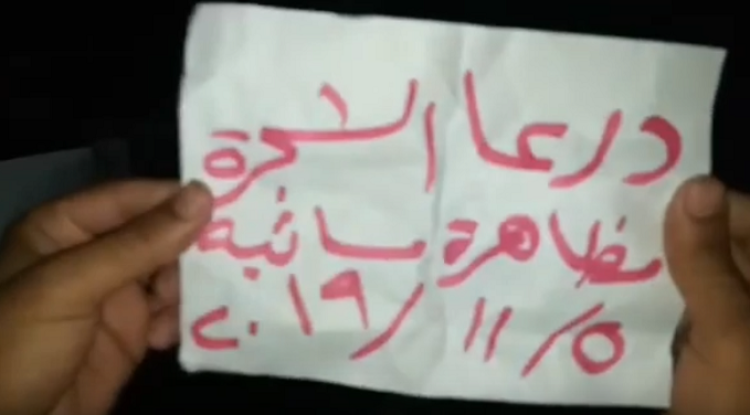 درعا الشجرة
مظاهرة مسائية
٢٠١٩/١١/٥